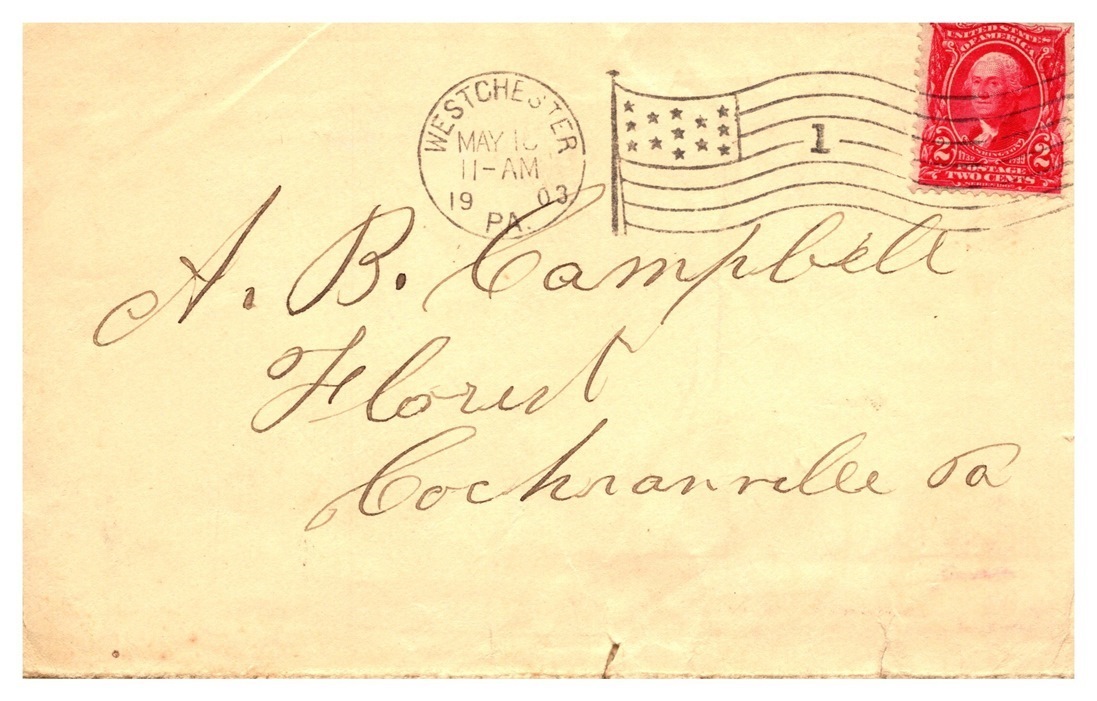 WESTCHESTER
MAY
11-AM
19 03
PA.
1
UNITED STATES
OF AMERICA
WASHINGTON
1732 1799
2 2
POSTAGE
TWO CENTS
SERIES 1902
A. B. Campbell
Florist
Cochranville Pa